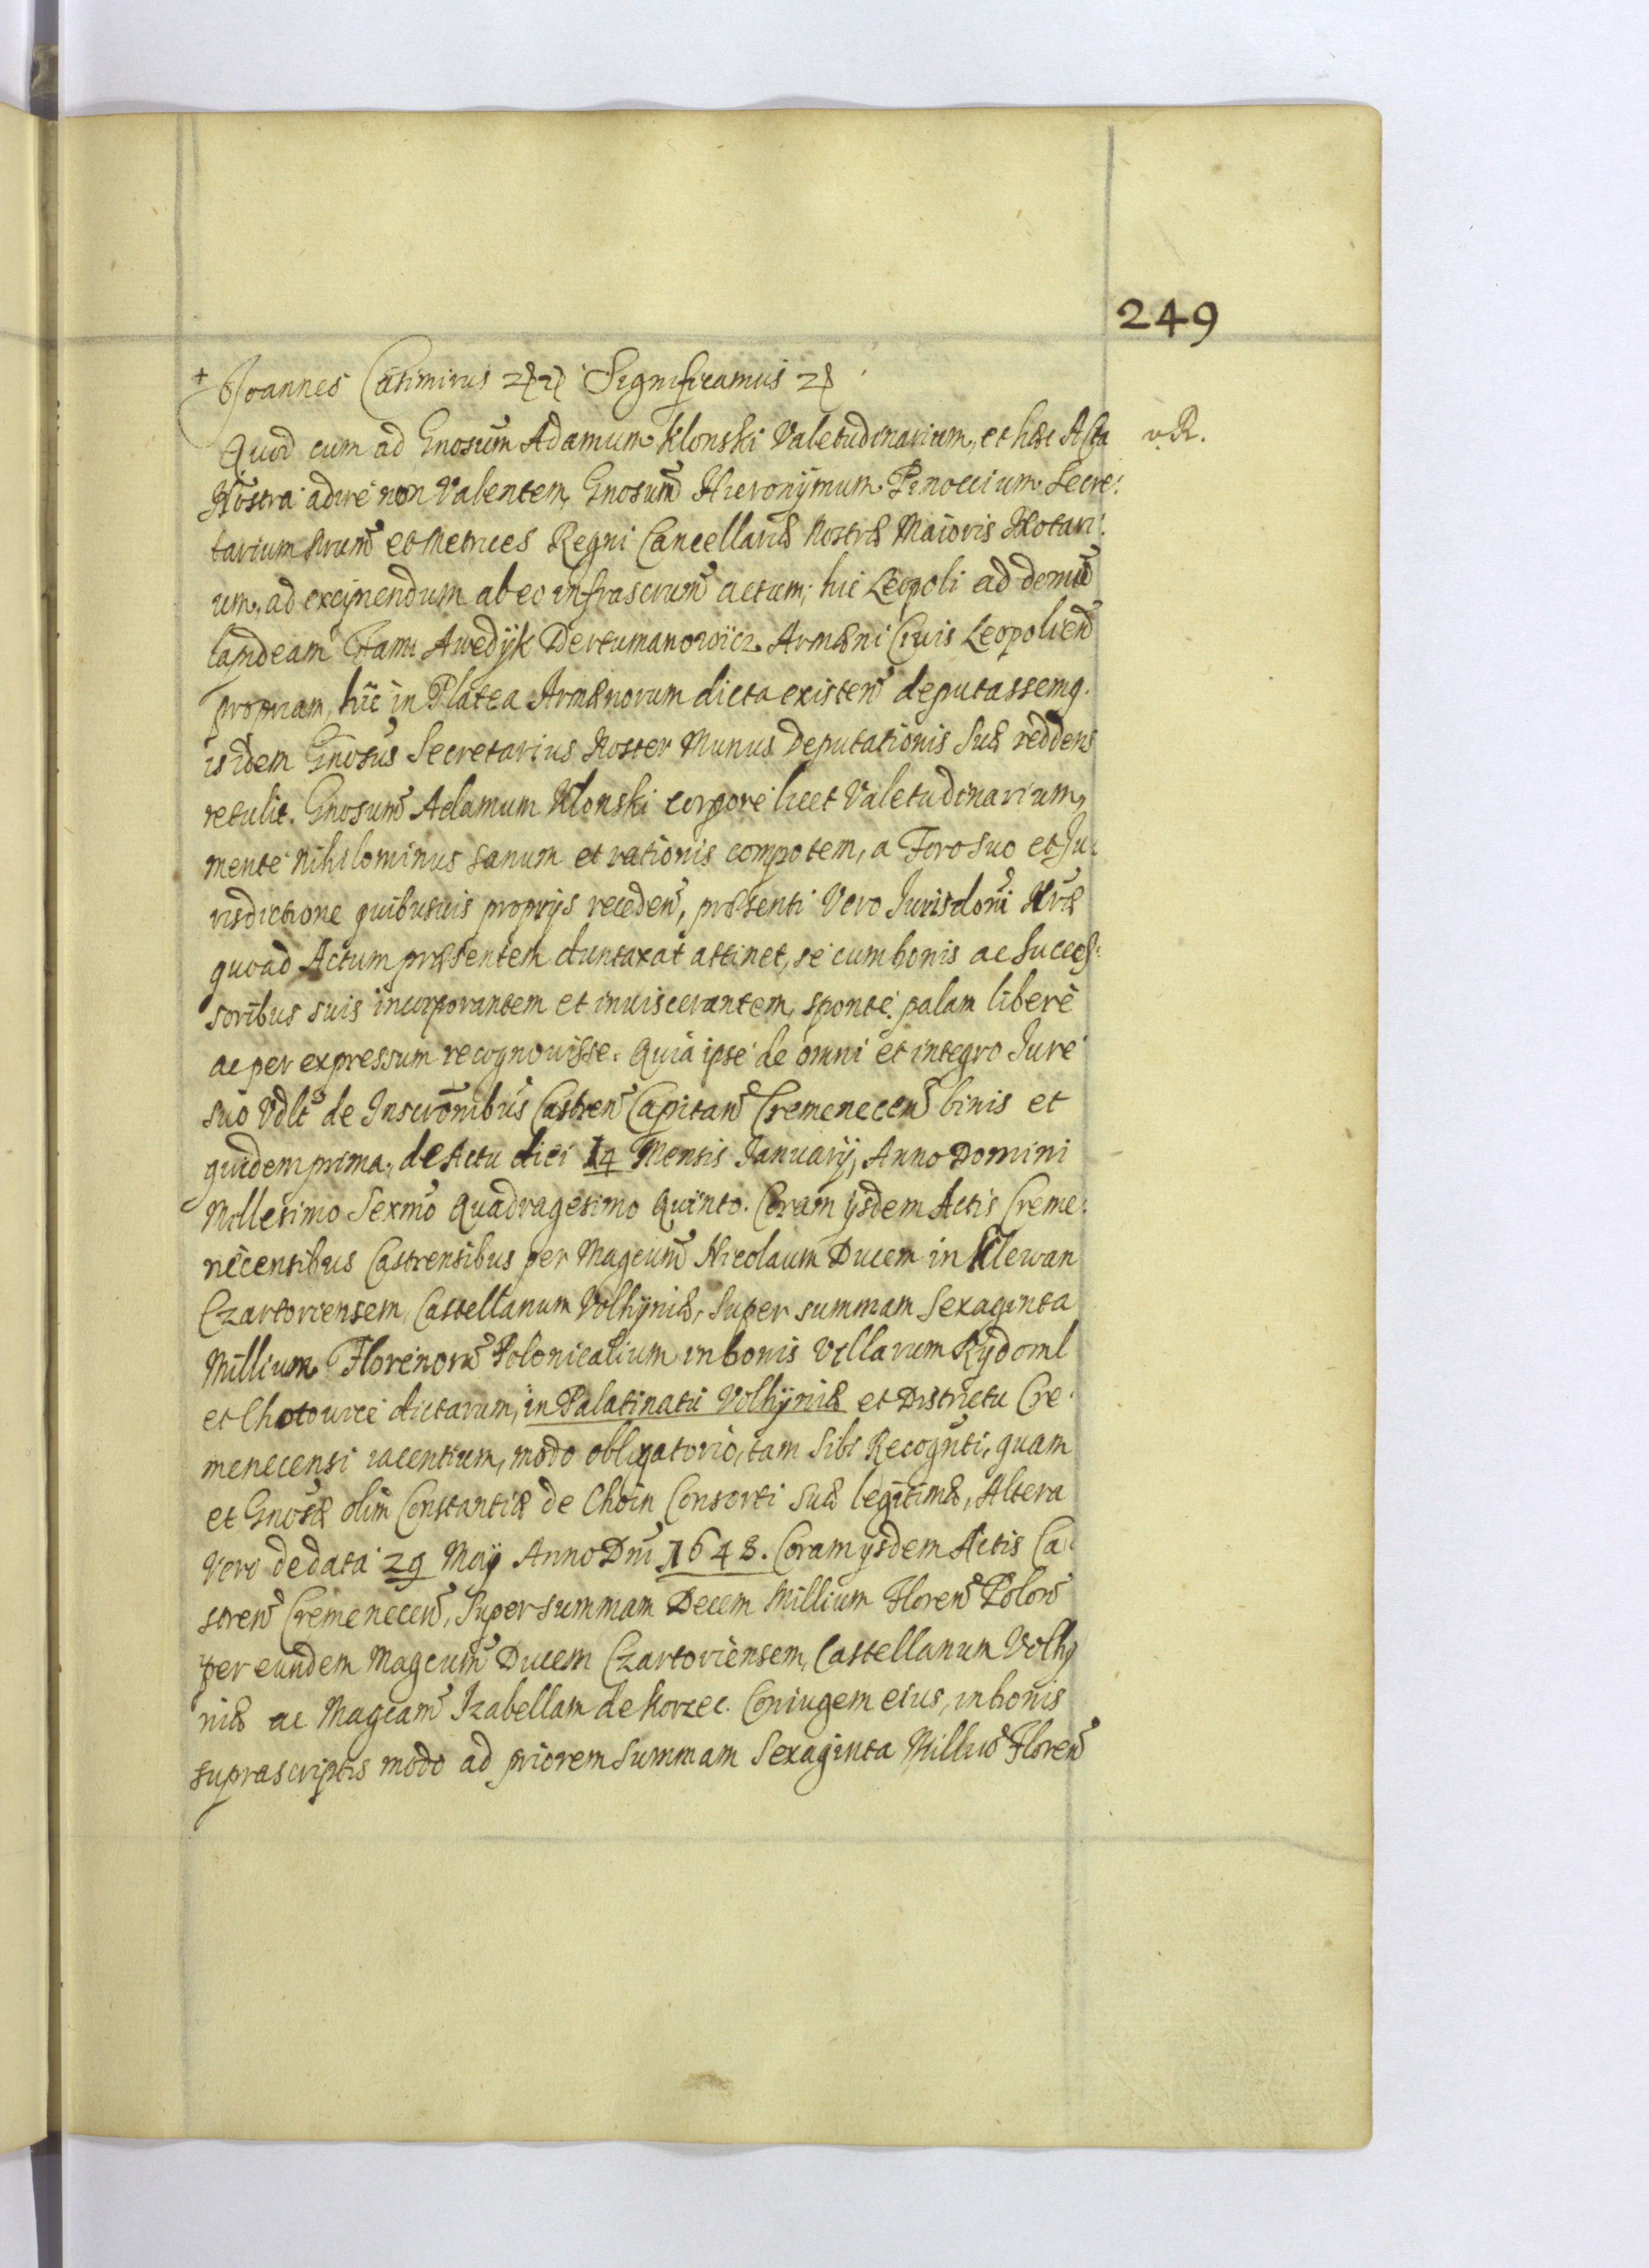 249
+ Joannes Casimirus &c &c Significamus &c
Quod cum ad Gnosum Adamum Klonski Valetudinarium, et hæc Acta
vR.
Nostra adire non Valentem, Gnosum Hieronÿmum Pinoccium Secre:
tarium Nrum et Metrices Regni Cancellariæ Nostræ Maioris Notari:
um, ad excipiendum ab eo infrascrum actum; hic Leopoli ad domū
lapideam Fam: Awedÿk Dertumanowicz Armæni Civis Leopolien
propriam, hic in Platea Armænorum dicta existen deputassemq.
is idem Gnosus Secretarius Noster Munus Deputationis Suæ reddens
retulit. Gnosum Adamum Klonski corpore licet Valetudinarium,
mente nihilominus sanum et rationis compotem, a Foro suo et Ju:
risdictione quibusuis proprÿs receden, præsenti Vero Jurisdoni Nræ
quoad Actum præsentem duntaxat attinet, se cum bonis ac Succes:
soribus suis incorporantem et inuiscerantem, sponte palam liberè
ac per expressum recognouisse. Quia ipse de omni et integro Jure
suo Vdlt de Inscronibus Castren Capitan Cremenecen binis et
quidem prima, de Actu diei 14 Mensis Januarÿ, Anno Domini
Millesimo Sexmo Quadragesimo Quinto. Coram ÿsdem Actis Creme:
necensibus Castrensibus per Magcum Nicolaum Ducem in Klewan
Czartoriensem, Castellanum Volhÿniæ, Super summam Sexaginta
Millium Florenoru Polonicalium in bonis Villarum Rydoml
et Chotowce dictarum, in Palatinatu Volhÿniæ et Districtu Cre:
menecensi iacentium, modo obligatorio, tam Sibi Recognti, quam
et Gnosæ olim Constantiæ de Choin Consorti Suæ legitimæ, Altera
Vero de data 29 Maÿ Anno Dni 1648. Coram ÿsdem Actis Ca:
stren Cremenecen, Super summam Decem Millium Floren Polon
per eundem Magcum Ducem Czartoriensem, Castellanum Volhÿ
niæ ac Magcam Izabellam de Korzec Coniugem eius, in bonis
suprascriptis modo ad priorem Summam Sexaginta Milliū Floren